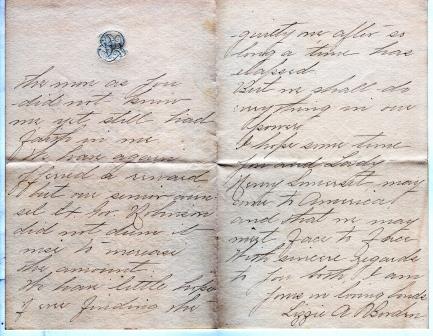 the more as you
did not know
me yet still had
faith in me
We have again
offered a reward
but our senior coun-
sel Ex Gov Robinson
did not deem it
wise to increase
the amount
We have little hope
of ever finding the
guilty one after so
long a time has
elapsed
But we shall do
everything in our
power
I hope some time
you and Lady
Henry Somerset may
come to America
and that we may
meet face to face
With sincere regards
to you both I am
yours in loving
Lizzie A Borden